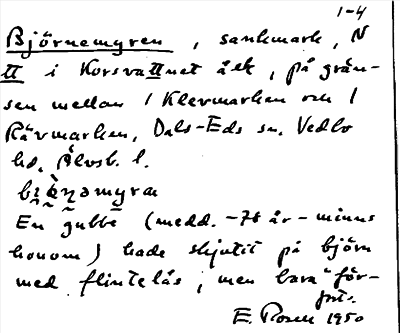 1-4
Björnemyren, sankmark, N
II i Korsvattnet åek, på grän-
sen mellan 1 Klevmarken och 1
Rävmarken, Dals-Eds sn. Vedbo
hd. Älvsb. l.
En gubbe (medd. -78 år - minns
honom) hade skjutit på björn
med flintelås, men bara "för-
gnt.
E. Rosen 1950